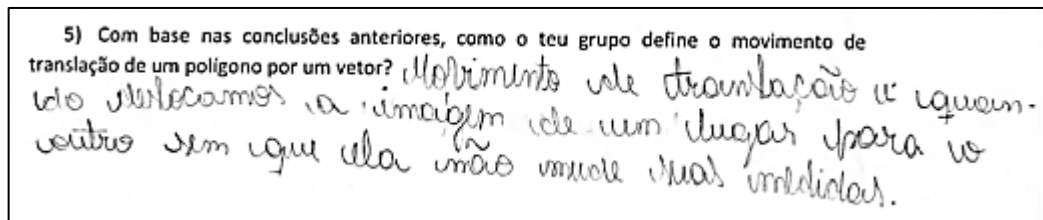 5) Com base nas conclusões anteriores, como o teu grupo define o movimento de
translação de um polígono por um vetor? Movimento de translação é quan-
do deslocamos a imagem de um lugar para o
outro sem que ela não mude suas medidas.